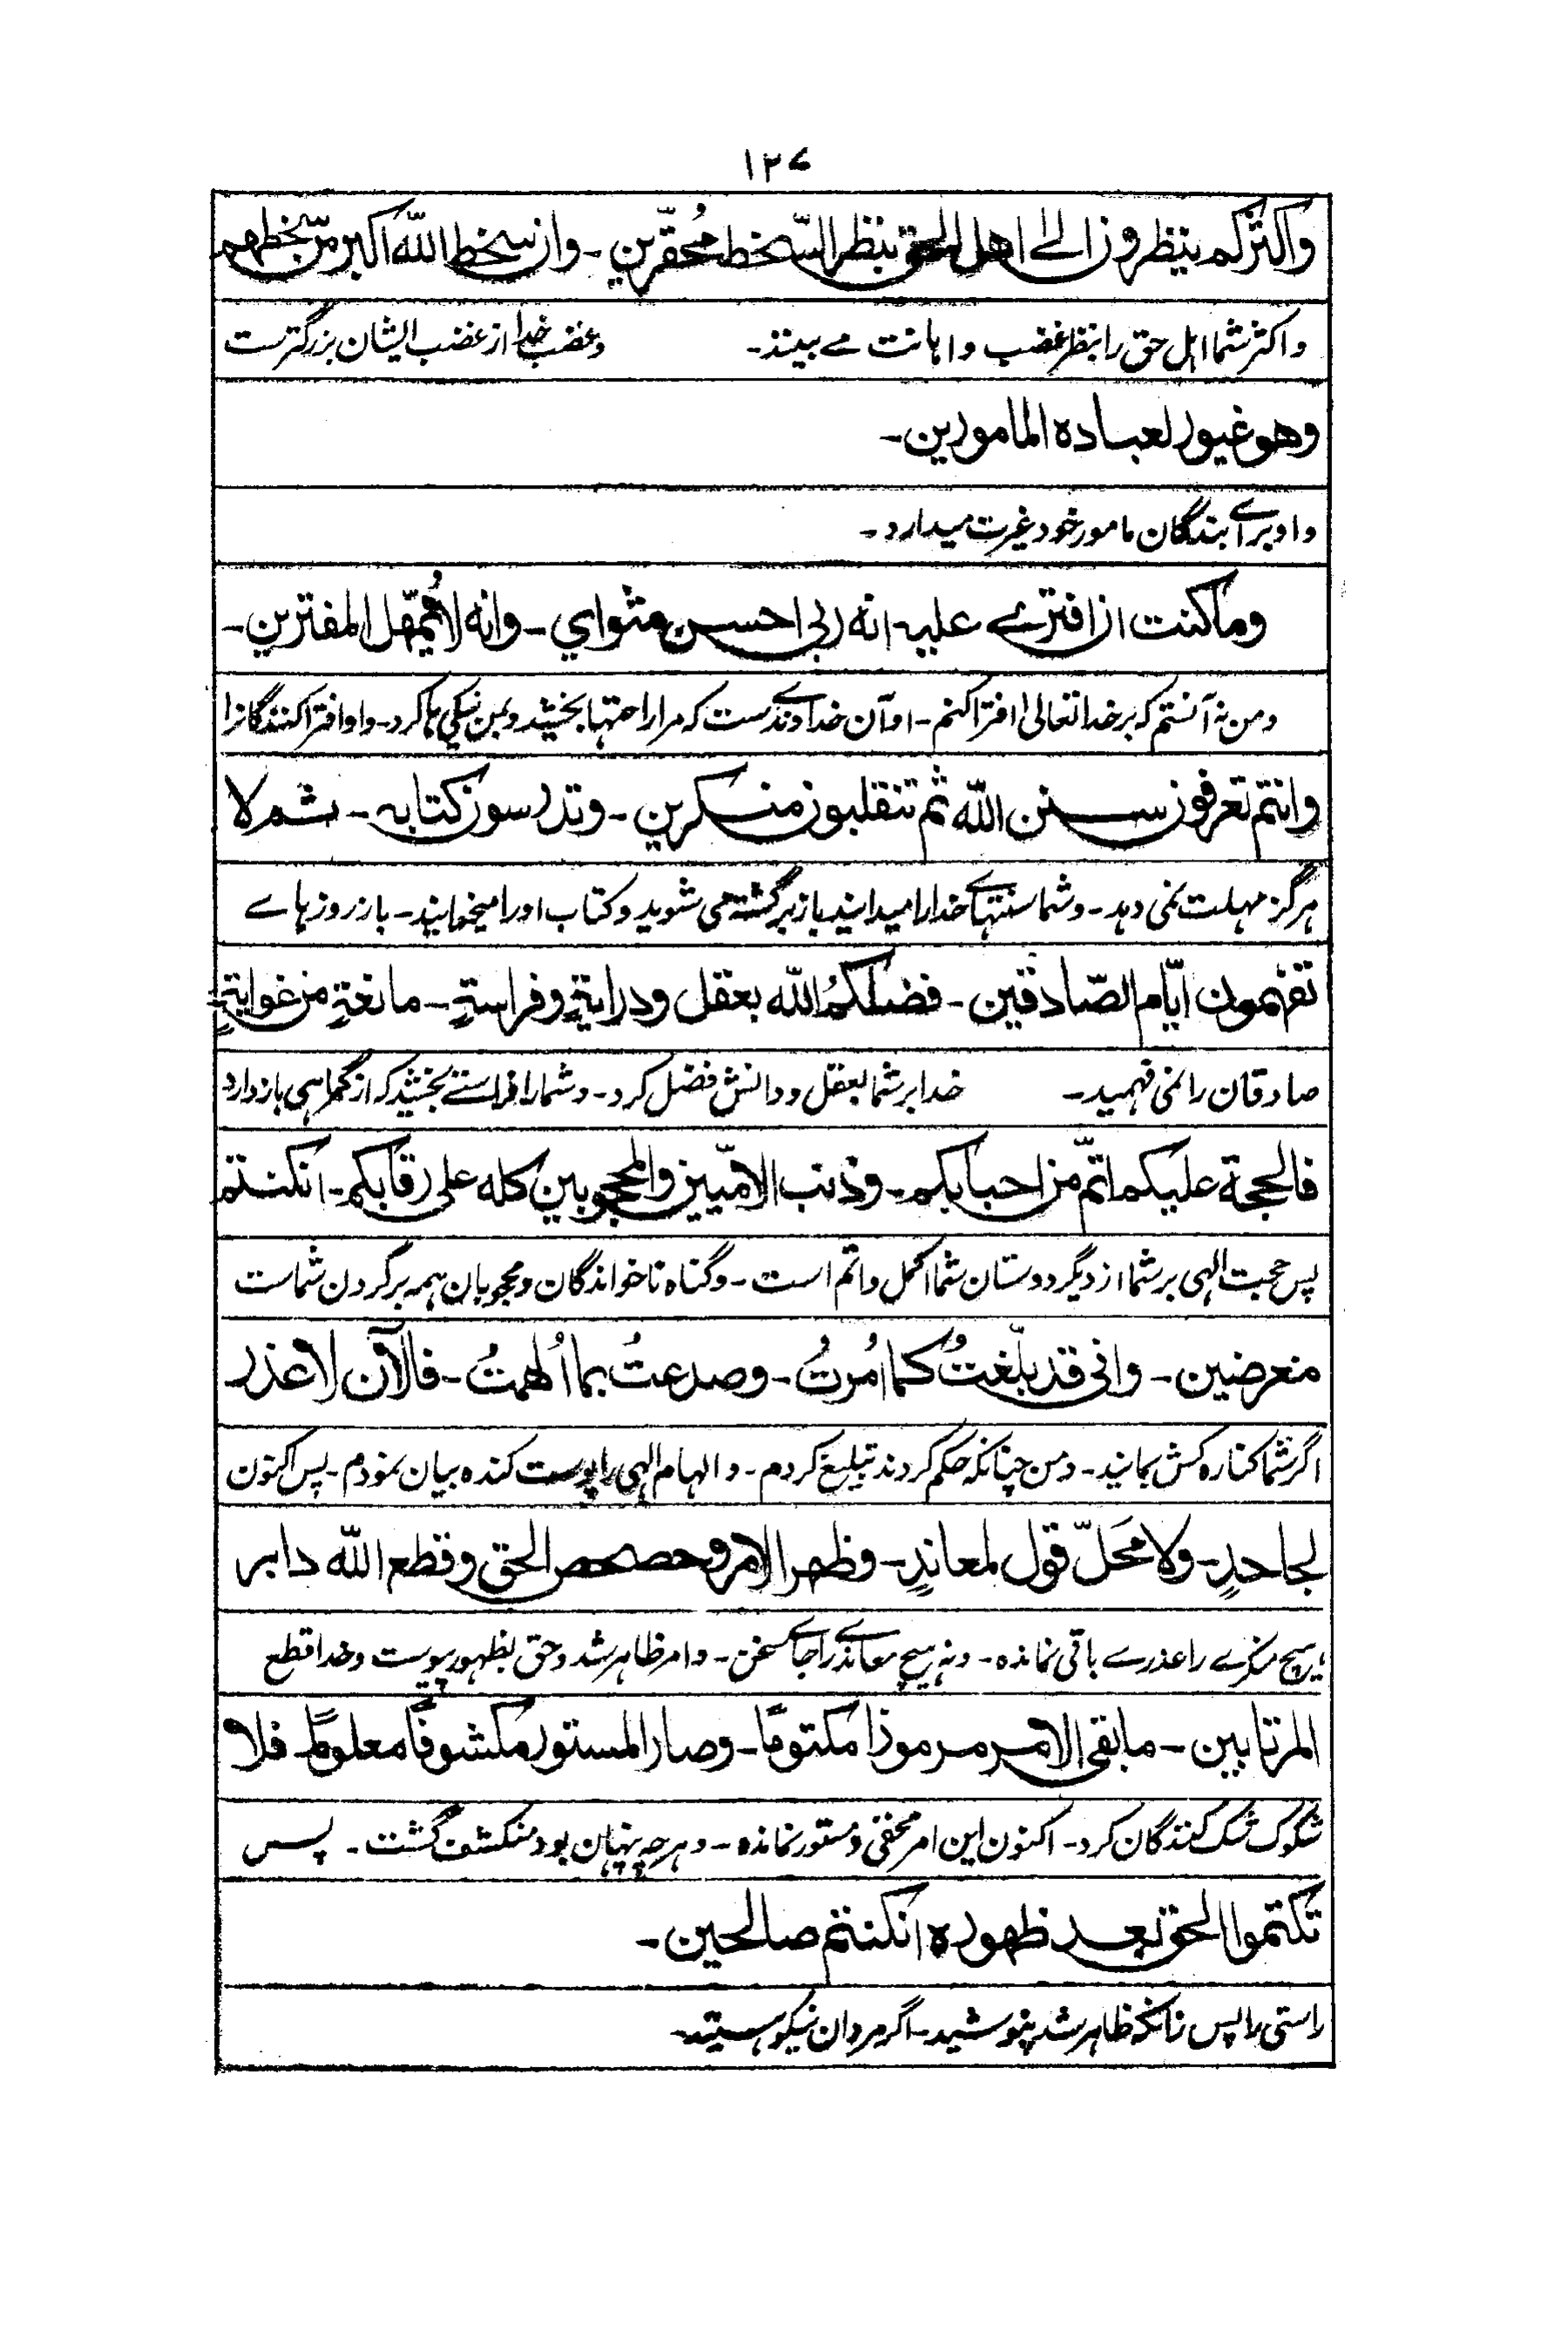 ۱۲۷
واکثرکم ینظرون الٰی اهل الحق بنظر السّخط مُحقّرین۔ وان سخط اللّٰه اکبر من سخطهم
و اکثر شما اہل حق را بنظر غضب و اہانت مے بینند۔ و غضب خدا از غضب ایشان بزرگترست
وهو غیور لعباده المامورین۔
و او برائے بندگان مامور خود غیرت میدارد۔
وما کنت ان افترے علیه انه ربی احسن مثوای۔ وانه لا یُمهّل المفترین۔
و من نہ آنستم کہ بر خدا تعالیٰ افترا کنم۔ او آن خداوندے ست کہ مرا راحتہا بخشید و بمن نیکی ہا کرد۔ و او افترا کنندگانرا
وانتم تعرفون سنن اللّٰه ثم تنقلبون منکرین۔ وتدرسون کتابه۔ ثم لا
ہرگز مہلت نمی دہد۔ و شما سنتہائے خدا را میدانید باز برگشتہ می شوید و کتاب او را میخوانید۔ باز روزہائے
تفهمون ایّام الصّادقین۔ فضلکمُ اللّٰه بعقل ودرایةٍ وفراسةٍ۔ مانعةٍ من غوایةٍ
صادقان را نمی فہمید۔ خدا بر شما بعقل و دانش فضل کرد۔ و شما را فراستے بخشید کہ از گمراہی باز دارد
فالحجة علیکم اتمّ من احبابکم۔ وذنب الامّیین والمحجوبین کله علی رقابکم۔ ان کنتم
پس حجت الٰہی بر شما از دیگر دوستان شما اکمل و اتم است۔ و گناہ ناخواندگان و محجوبان ہمہ بر گردن شماست
معرضین۔ وانی قد بلّغتُ کما اُمرتُ۔ وصدعتُ بما اُلهمتُ۔ فالآن لا عذر
اگر شما کنارہ کش بمانید۔ و من چنانکہ حکم کردند تبلیغ کردم۔ و الہام الٰہی را پوست کندہ بیان نمودم۔ پس اکنون
لجاحدٍ۔ ولا محَلّ قول لمعاندٍ۔ وظهر الامر وحصحص الحق وقطع اللّٰه دابر
ہیچ منکرے را عذرے باقی نماندہ۔ و نہ ہیچ معاندے را جائے سخن۔ و امر ظاہر شد و حق بظہور پیوست و خدا قطع
المرتابین۔ ما بقی الامر مرموزا مکتومًا۔ وصار المستور مکشوفًا معلومًا۔ فلا
شکوک شک کنندگان کرد۔ اکنون این امر مخفی و مستور نماندہ۔ و ہرچہ پنہان بود منکشف گشت۔ پس
تکتموا الحق بعد ظهوره ان کنتم صالحین۔
راستی را پس زانکہ ظاہر شد پنوشید۔ اگر مردان نیکو ہستید۔